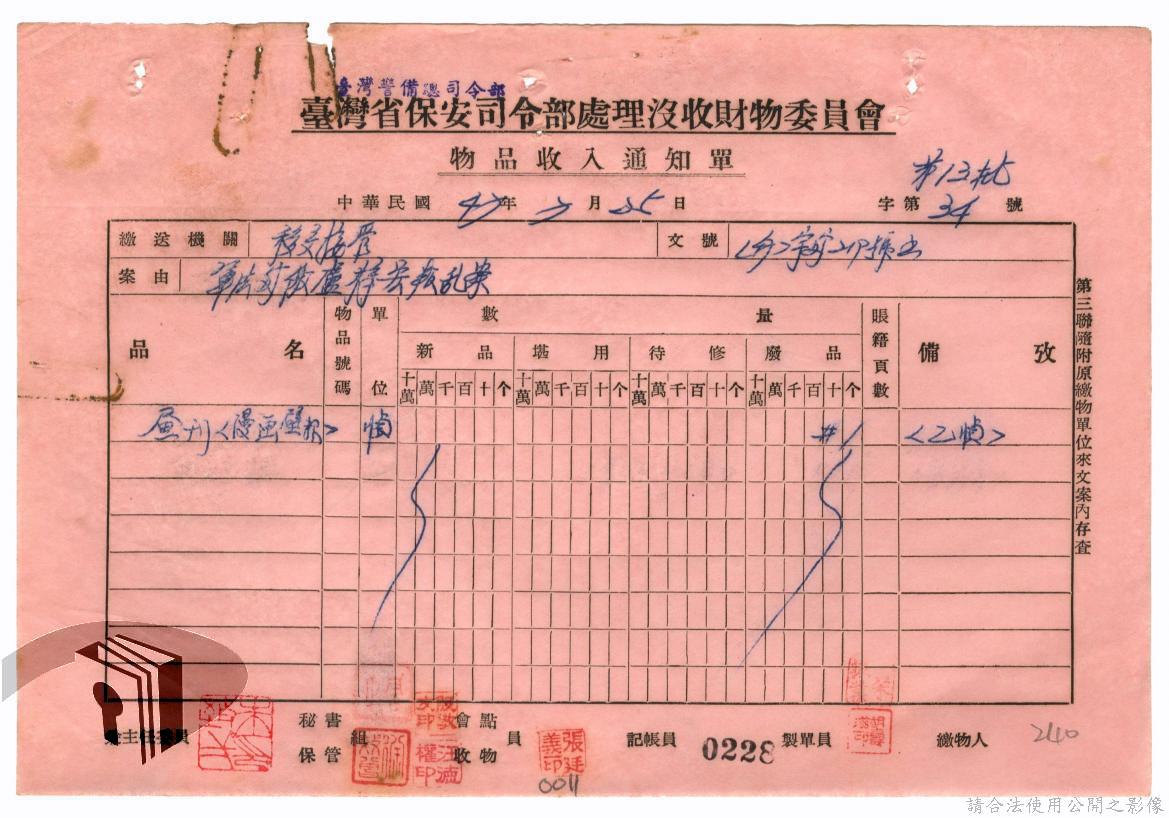 臺灣警備總司令部
臺灣省保安司令部處理沒收財物委員會
物品收入通知單
第13批
中華民國 47年 月 25日 字第 34 號
繳送機關 移交接管 文號
案由 叛乱案
品名 物品號碼 單位 數量 賬籍頁數 備攷
新品 堪用 待修 廢品
十萬 萬 千 百 十 个 十萬 萬 千 百 十 个 十萬 萬 千 百 十 个 十萬 萬 千 百 十 个
画刊<漫画壁报> 幀 #1 <乙幀>
第三聯隨附原繳物單位來文案內存查
兼主任委員 秘書 保管 組 會點 收物 員 記帳員 0228 製單員 繳物人 240
張廷義印
0011
請合法使用公開之影像